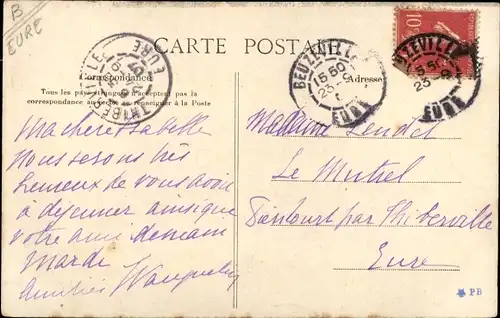 B
EURE
CARTE POSTALE
10
BEUZEVILLE
15 50
23 -9
EURE
THIBERVILLE
EURE
Correspondance
Adresse
Tous les pays étrangers n'acceptent pas la
correspondance au recto se renseigner à la Poste
Ma chère Isabelle
Nous serons très
heureux de vous avoir
à dejeuner ainsi que
votre amie demain
Mardi
Amitiés
Madame
Le
par Thiberville
Eure
PB